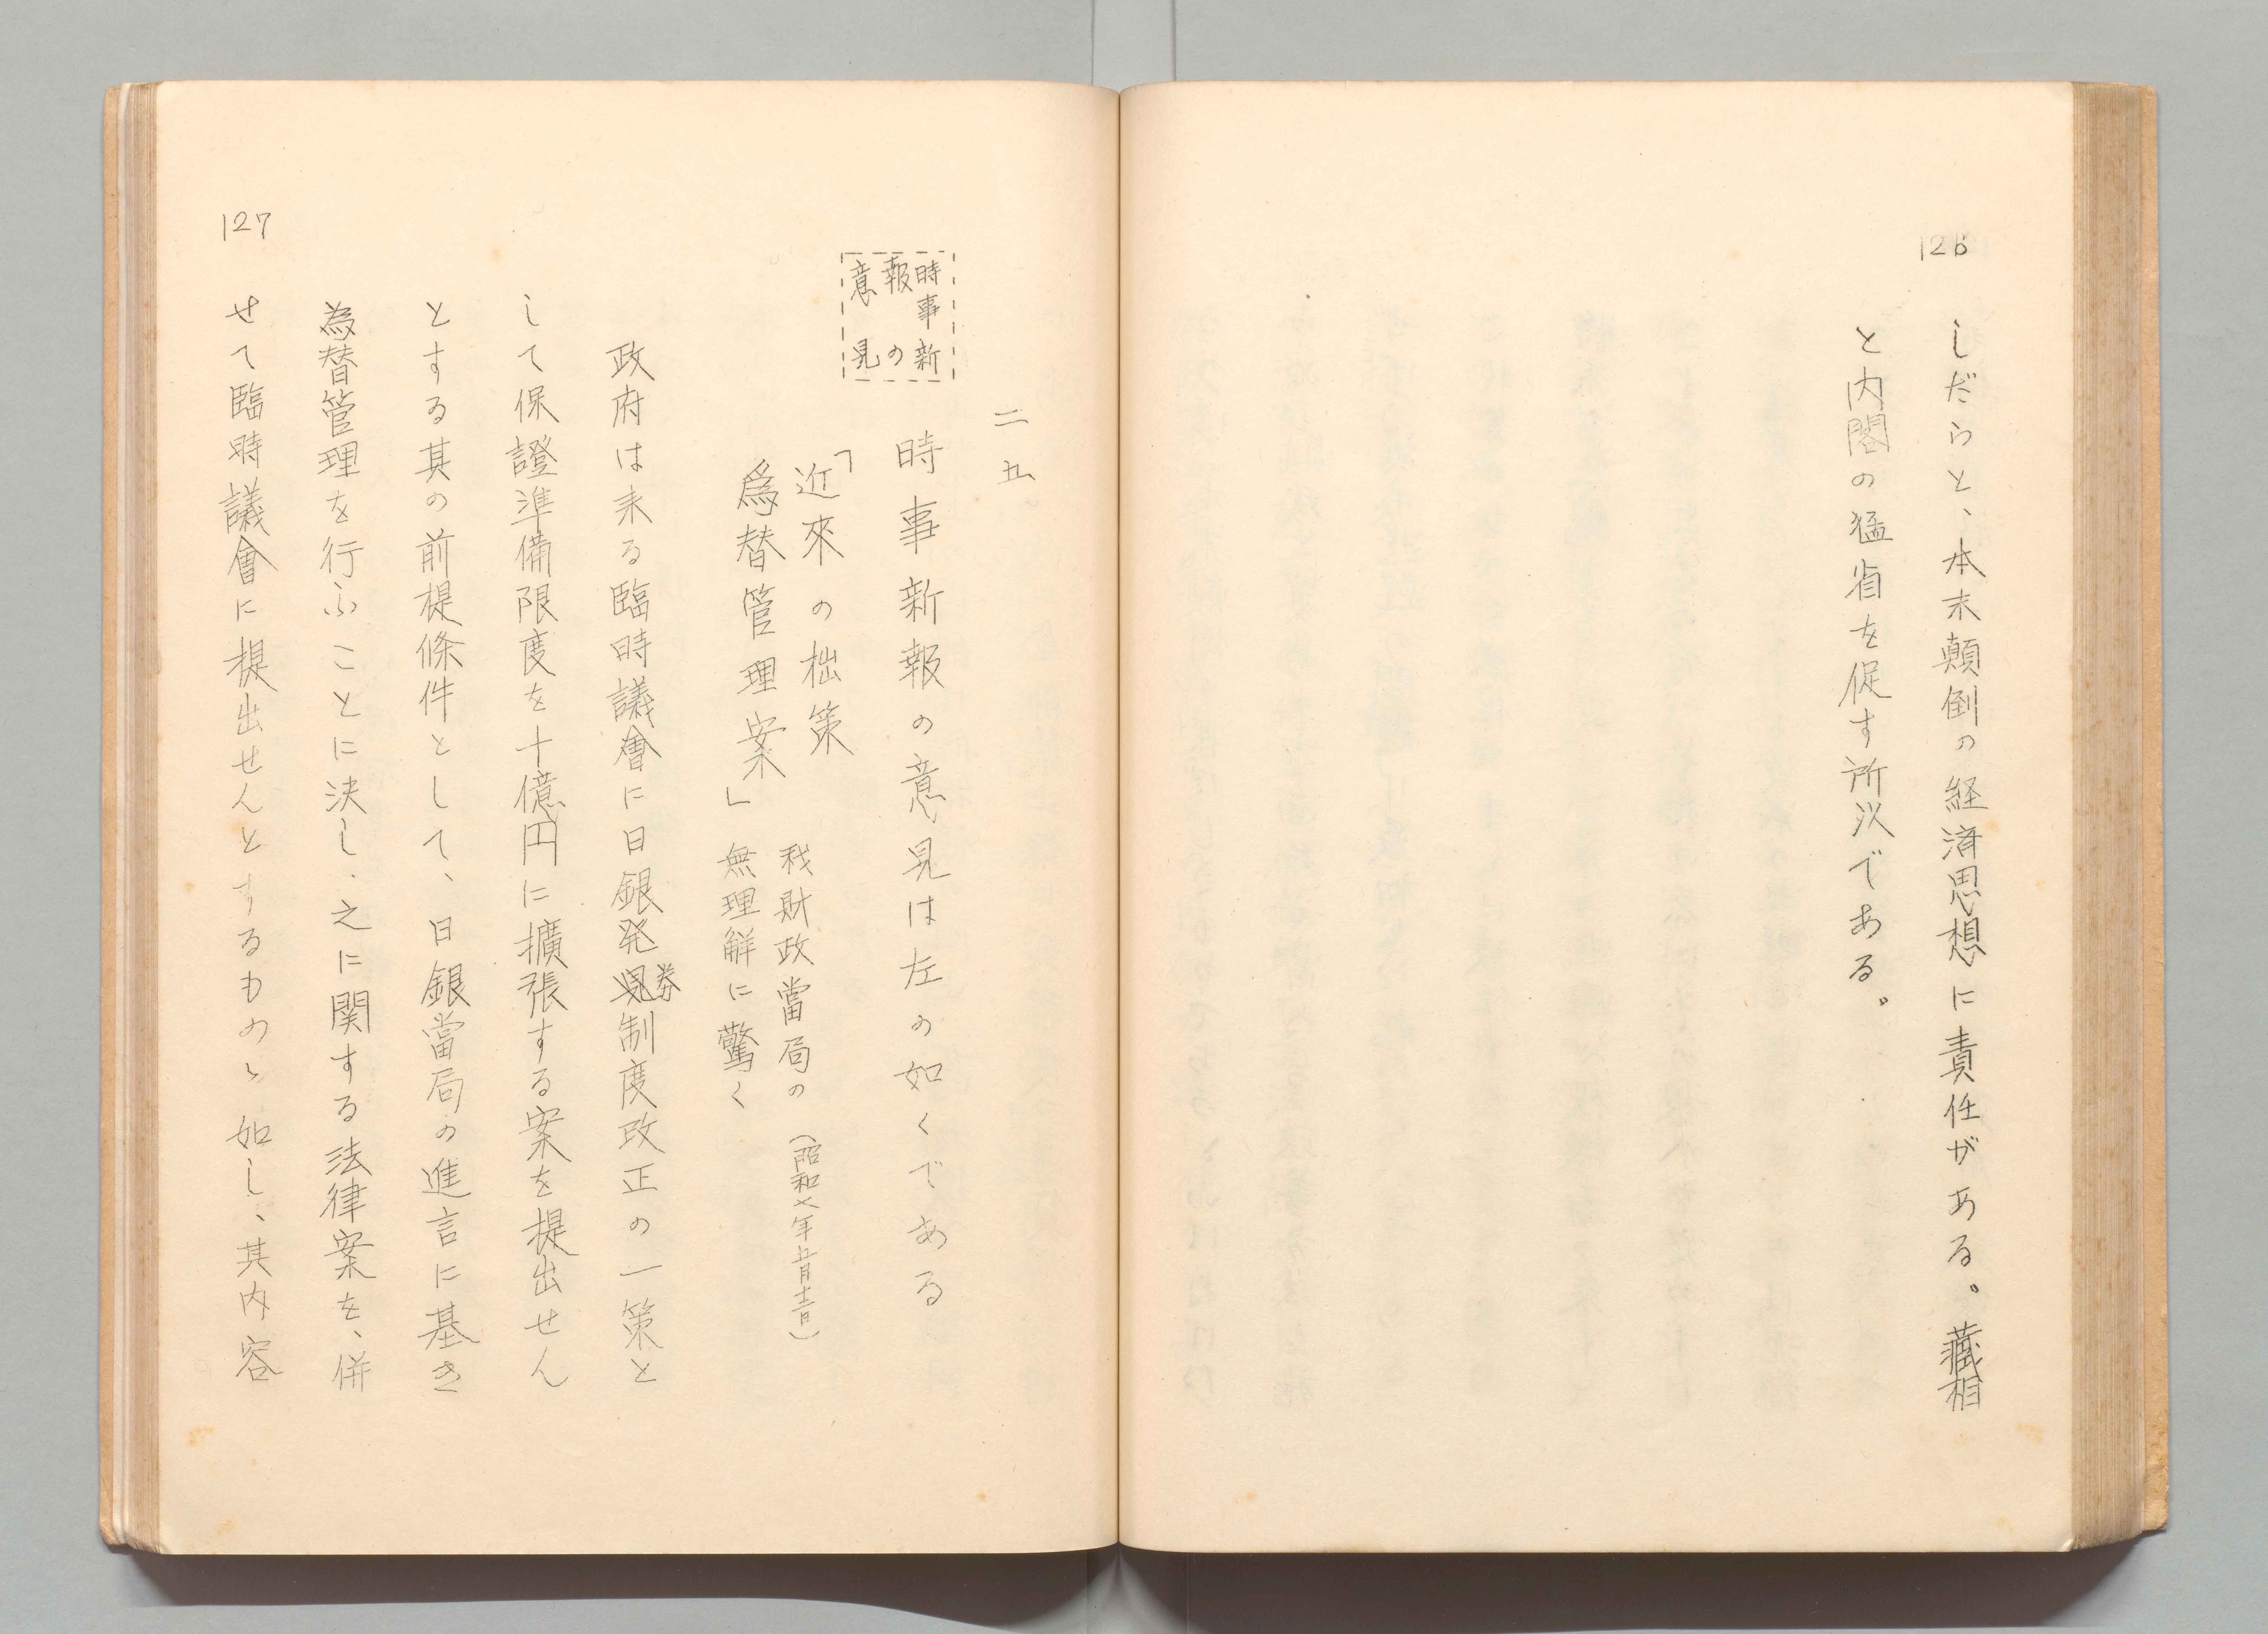 126
しだらと、本末顛倒の経済思想に責任がある。藏相
と内閣の猛省を促す所以である。
二九
時事新
報の
意見
時事新報の意見は左の如くである
「近來の拙策
爲替管理案」
我財政當局の
無理解に驚く
(昭和七年五月十二日)
政府は来る臨時議會に日銀発券制度改正の一策と
して保證準備限度を十億円に擴張する案を提出せん
とする其の前提條件として、日銀當局の進言に基き
為替管理を行ふことに決し、之に関する法律案を、併
せて臨時議會に提出せんとするものゝ如し、其内容
127